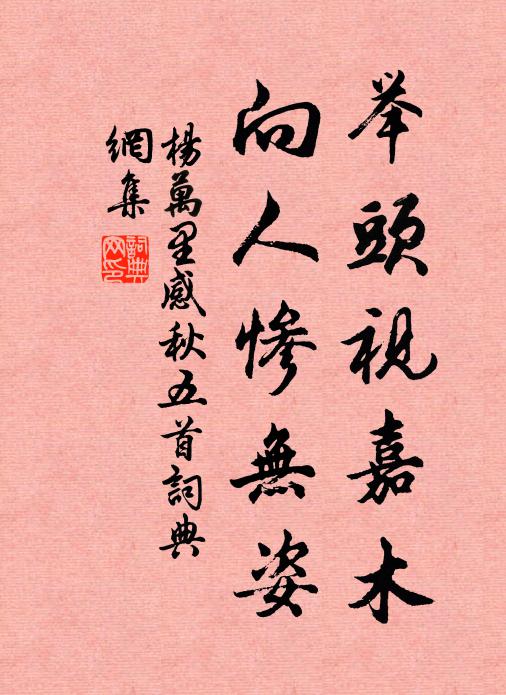 举頭視嘉木
向人惨無姿
楊萬里感秋五首詞典
網集
詞典网印